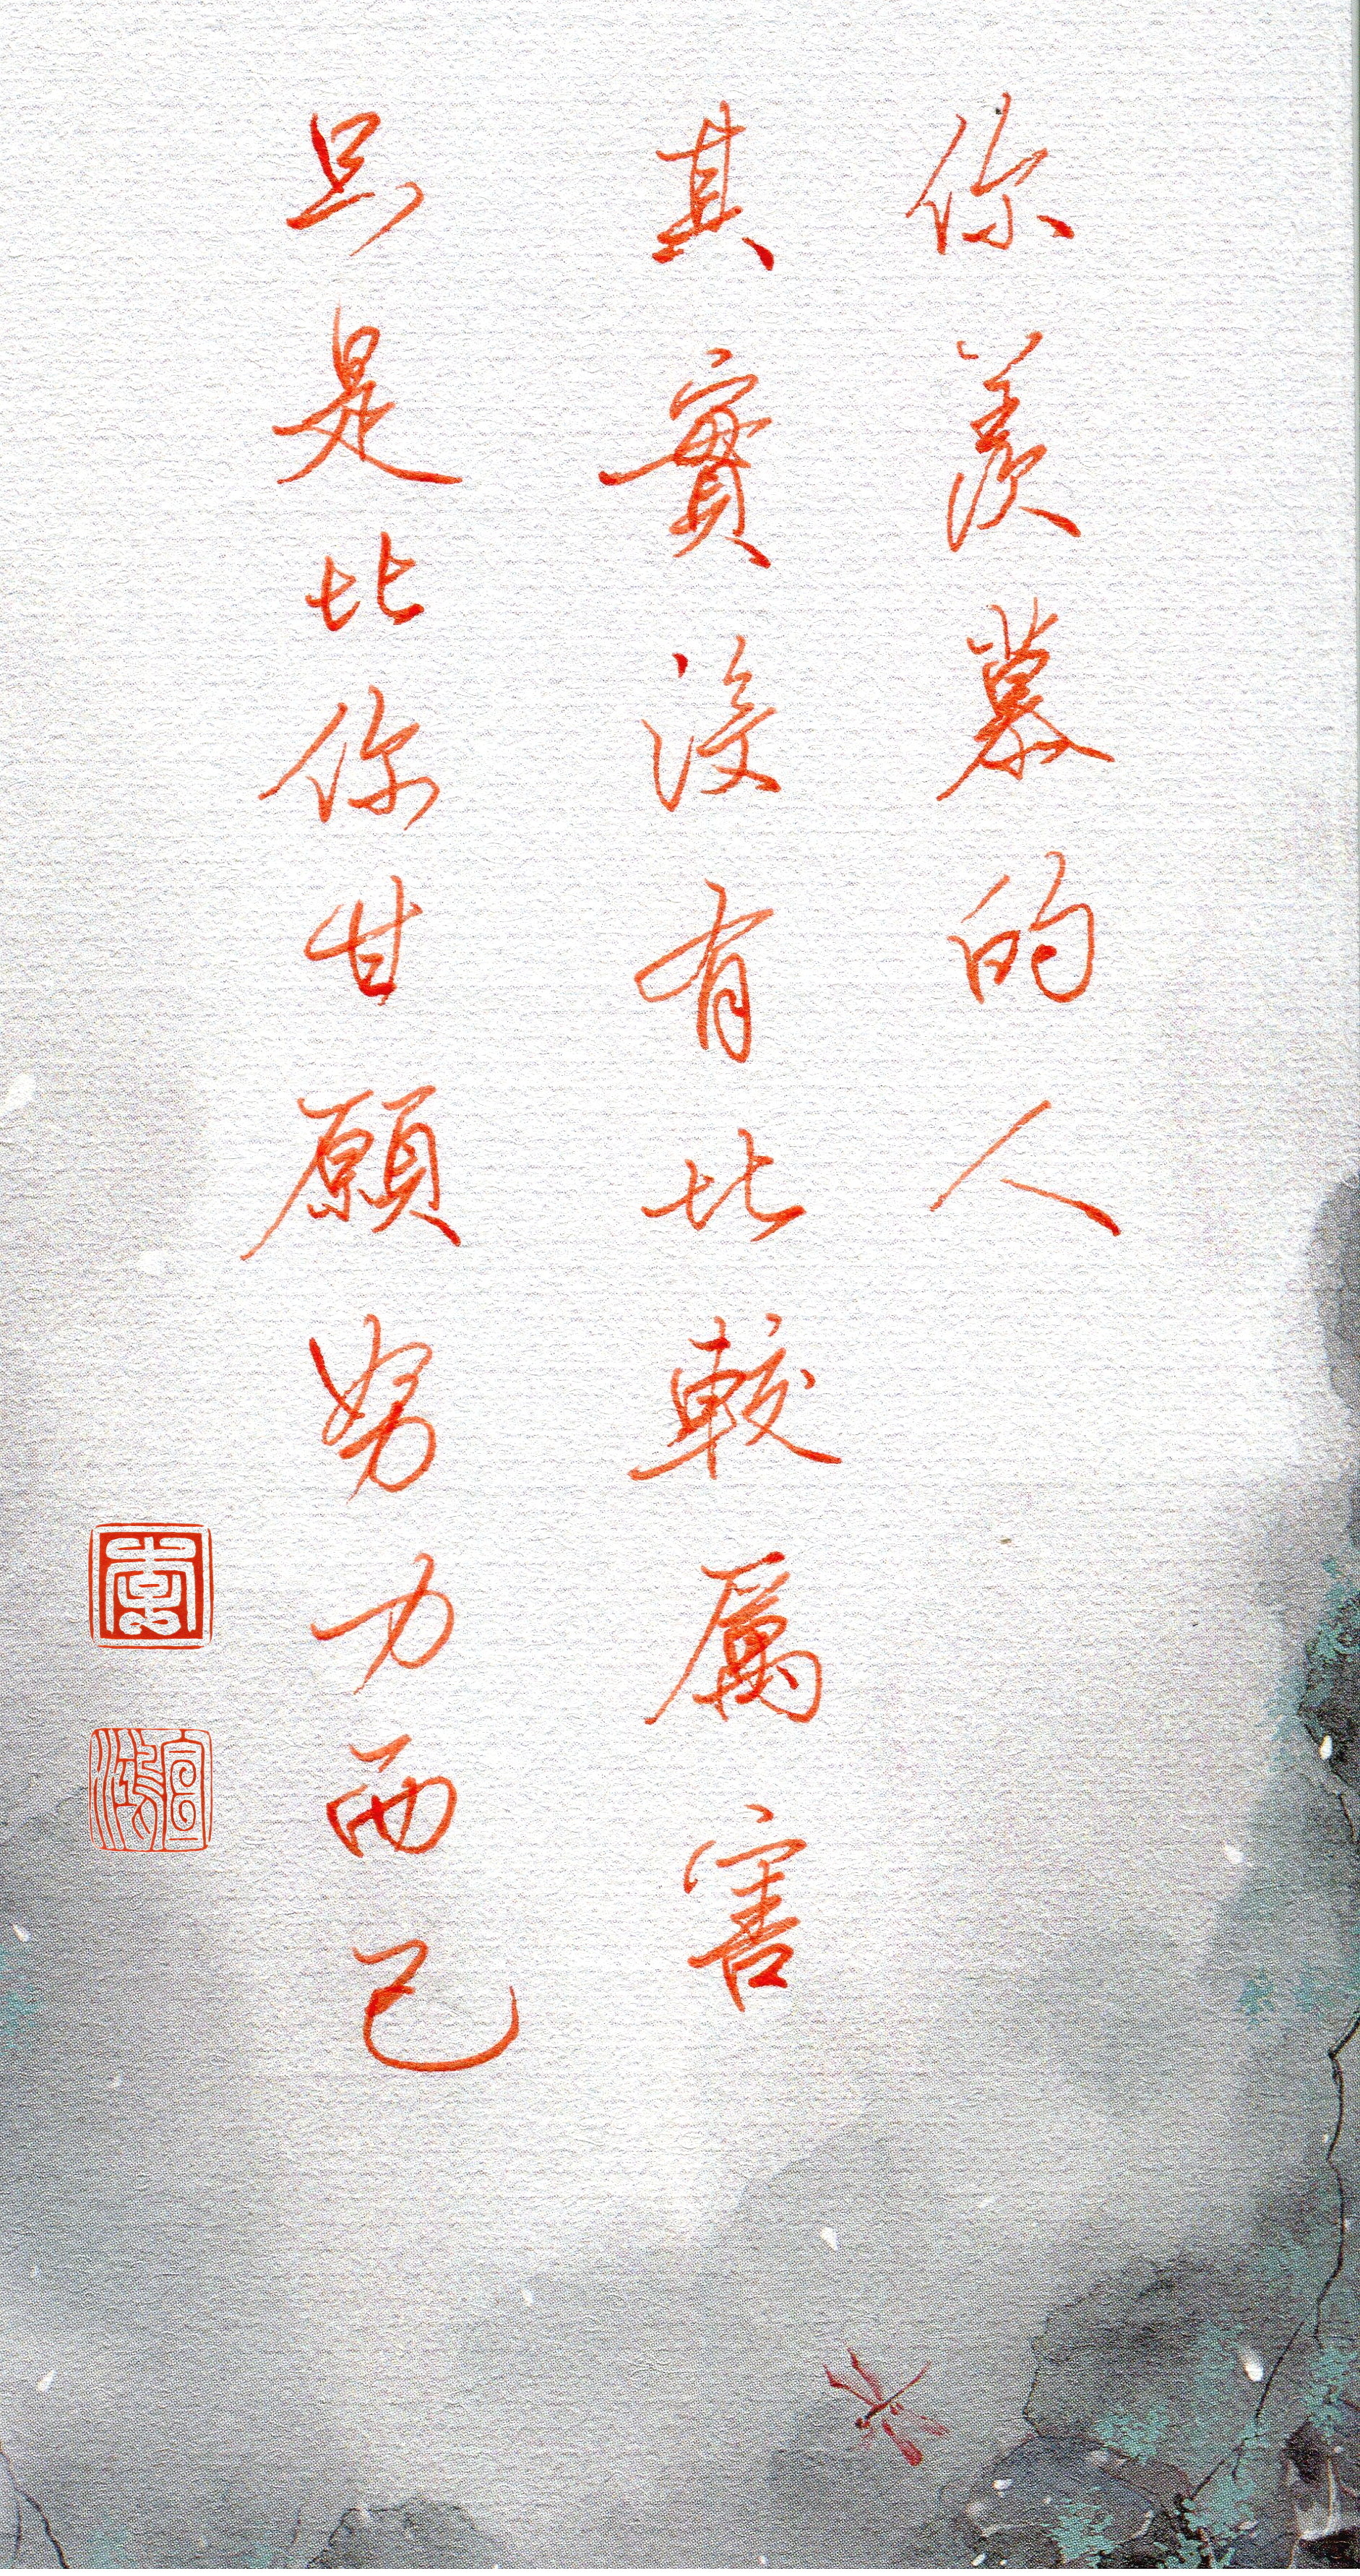 你羨慕的人
其實沒有比較厲害
只是比你甘願努力而已